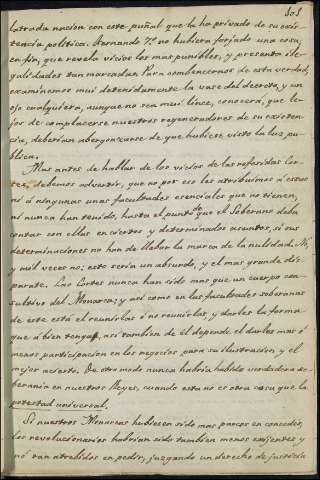 301
latrada nacion con este puñal que la ha privado de su exis-
tencia politica. Fernando 7º no hubiera forjado una cosa,
en fin, que revela vicios los mas punibles, y presenta ile-
galidades tan marcadas. Para combencernos de esta verdad,
examinemos mui detenidamente la vase del decreto, y un
ojo cualquiera, aunque no sea mui lince, conocerá, que le-
jos de complacerse nuestros regeneradores de su existen-
cia, deberian abergonzarse de que hubiese visto la luz pu-
blica.
Mas antes de hablar de los vicios de las referidas Cor-
tes, debemos advertir, que no por eso les atribuimos á estas
ni á ningunas unas facultades esenciales que no tienen,
ni nunca han tenido, hasta el punto que el Soberano deba
contar con ellas en ciertos y determinados asuntos, si sus
determinaciones no han de llebar la marca de la nulidad. No,
y mil veces no; esto seria un absurdo, y el mas grande dis-
parate. Las Cortes nunca han sido mas que un cuerpo con-
sultivo del Monarca; y asi como en las facultades soberanas
de este está el reunirlas ó no reunirlas, y darles la forma
que á bien tenga, asi tambien de él depende el darles mas ó
menos participacion en los negocios para su ilustracion, y el
mejor acierto. De otro modo nunca habria habido verdadera so-
berania en nuestros Reyes, cuando esta no es otra cosa que la
potestad universal.
Si nuestros Monarcas hubiesen sido mas parcos en conceder,
los revolucionarios habrian sido tambien menos exijentes y
no tan atrebidos en pedir, juzgando un derecho de justicia